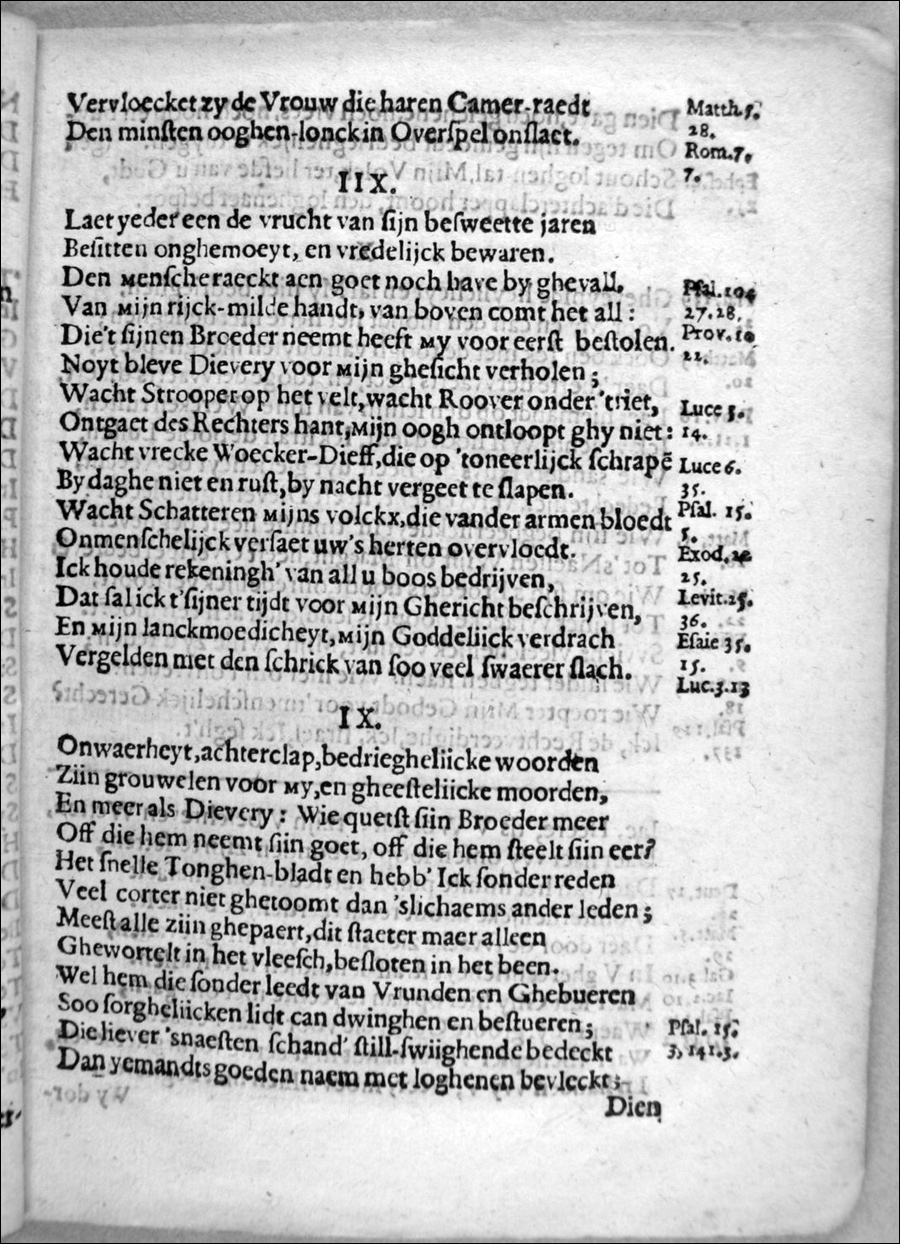 Vervloecket zy de Vrouw die haren Camer-raedt
Den minsten ooghen-lonck in Overspel onslaet.
Matth. 5.
28.
Rom. 7.
7.
IIX.
Laet yeder een de vrucht van sijn besweette jaren
Besitten onghemoeyt, en vredelijck bewaren.
Den Mensche raeckt aen goet noch have by ghevall,
Van Mijn rijck-milde handt, van boven comt het all :
Die't sijnen Broeder neemt heeft MY voor eerst bestolen.
Noyt bleve Dievery voor Mijn ghesicht verholen ;
Wacht Strooper op het velt, wacht Roover onder 'triet,
Ontgaet des Rechters hant, Mijn oogh ontloopt ghy niet :
Wacht vrecke Woecker-Dieff, die op 'toneerlijck schrapē
By daghe niet en rust, by nacht vergeet te slapen.
Wacht Schatteren Mijns volckx, die vander armen bloedt
Onmenschelijck versaet uw's herten overvloedt.
Ick houde rekeningh' van all u boos bedrijven,
Dat sal ick t'sijner tijdt voor Mijn Ghericht beschrijven,
En Mijn lanckmoedicheyt, Mijn Goddeliick verdrach
Vergelden met den schrick van soo veel swaerer slach.
Psal. 104
27.28.
Prov. 10
22.
Luce 3.
14.
Luce 6.
35.
Psal. 15.
5.
Exod. 22
25.
Levit. 25.
36.
Esaie 35.
15.
Luc. 3. 13
IX.
Onwaerheyt, achterclap, bedriegheliicke woorden
Ziin grouwelen voor MY, en gheesteliicke moorden,
En meer als Dievery : Wie quetst siin Broeder meer
Off die hem neemt siin goet, off die hem steelt siin eer?
Het snelle Tonghen-bladt en hebb' Ick sonder reden
Veel corter niet ghetoomt dan 'slichaems ander leden ;
Meest alle ziin ghepaert, dit staeter maer alleen
Ghewortelt in het vleesch, besloten in het been.
Wel hem die sonder leedt van Vrunden en Ghebueren
Soo sorgheliicken lidt can dwinghen en bestueren ;
Die liever 'snaesten schand' still-swiighende bedeckt
Dan yemandts goeden naem met loghenen bevleckt ;
Psal. 15.
3, 141.3.
Dien